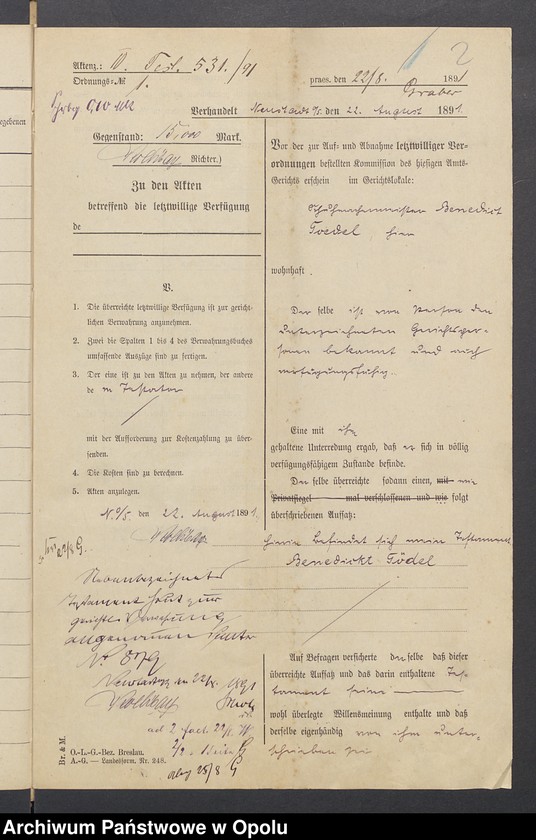 2
Aktenz.: IV. Test. 531./91
Ordnungs-№ 1.
praes. den 22/8. 1891
Graber
Verhandelt Neustadt O/S. den 22. August 1891.
Gegenstand: 15,000 Mark.
Richter.)
Zu den Akten
betreffend die letztwillige Verfügung
de
V.
1. Die überreichte letztwillige Verfügung ist zur gericht-
lichen Verwahrung anzunehmen.
2. Zwei die Spalten 1 bis 4 des Verwahrungsbuches
umfassende Auszüge sind zu fertigen.
3. Der eine ist zu den Akten zu nehmen, der andere
de m Testator
mit der Aufforderung zur Kostenzahlung zu über-
senden.
4. Die Kosten sind zu berechnen.
5. Akten anzulegen.
N. O/S. den 22. August 1891.
Nebenbezeichnetes
Testament heut zur
gerichtl. Verwahrung
angenommen unter
№ 879
Neustadt, den 22/8. 1891
Br. & M.
O.-L.-G.-Bez. Breslau.
A.-G. — Landesform. Nr. 248.
Vor der zur Auf- und Abnahme letztwilliger Ver-
ordnungen bestellten Kommission des hiesigen Amts-
Gerichts erschein im Gerichtslokale:
Schuhmachermeister Benedict
Toedel hier
wohnhaft.
Der selbe ist von Person den
unterzeichneten Gerichtsper-
sonen bekannt und auch
verfügungsfähig.
Eine mit ihm
gehaltene Unterredung ergab, daß er sich in völlig
verfügungsfähigem Zustande befinde.
Der selbe überreichte sodann einen, mit wie
Privatsiegel mal verschlossenen und wie folgt
überschriebenen Aufsatz:
Hierin befindet sich mein Testament
Benedickt Tödel
Auf Befragen versicherte derselbe daß dieser
überreichte Aufsatz und das darin enthaltene Tes-
tament seine
wohl überlegte Willensmeinung enthalte und daß
derselbe eigenhändig von ihm unter-
schrieben sei
Archiwum Państwowe w Opolu